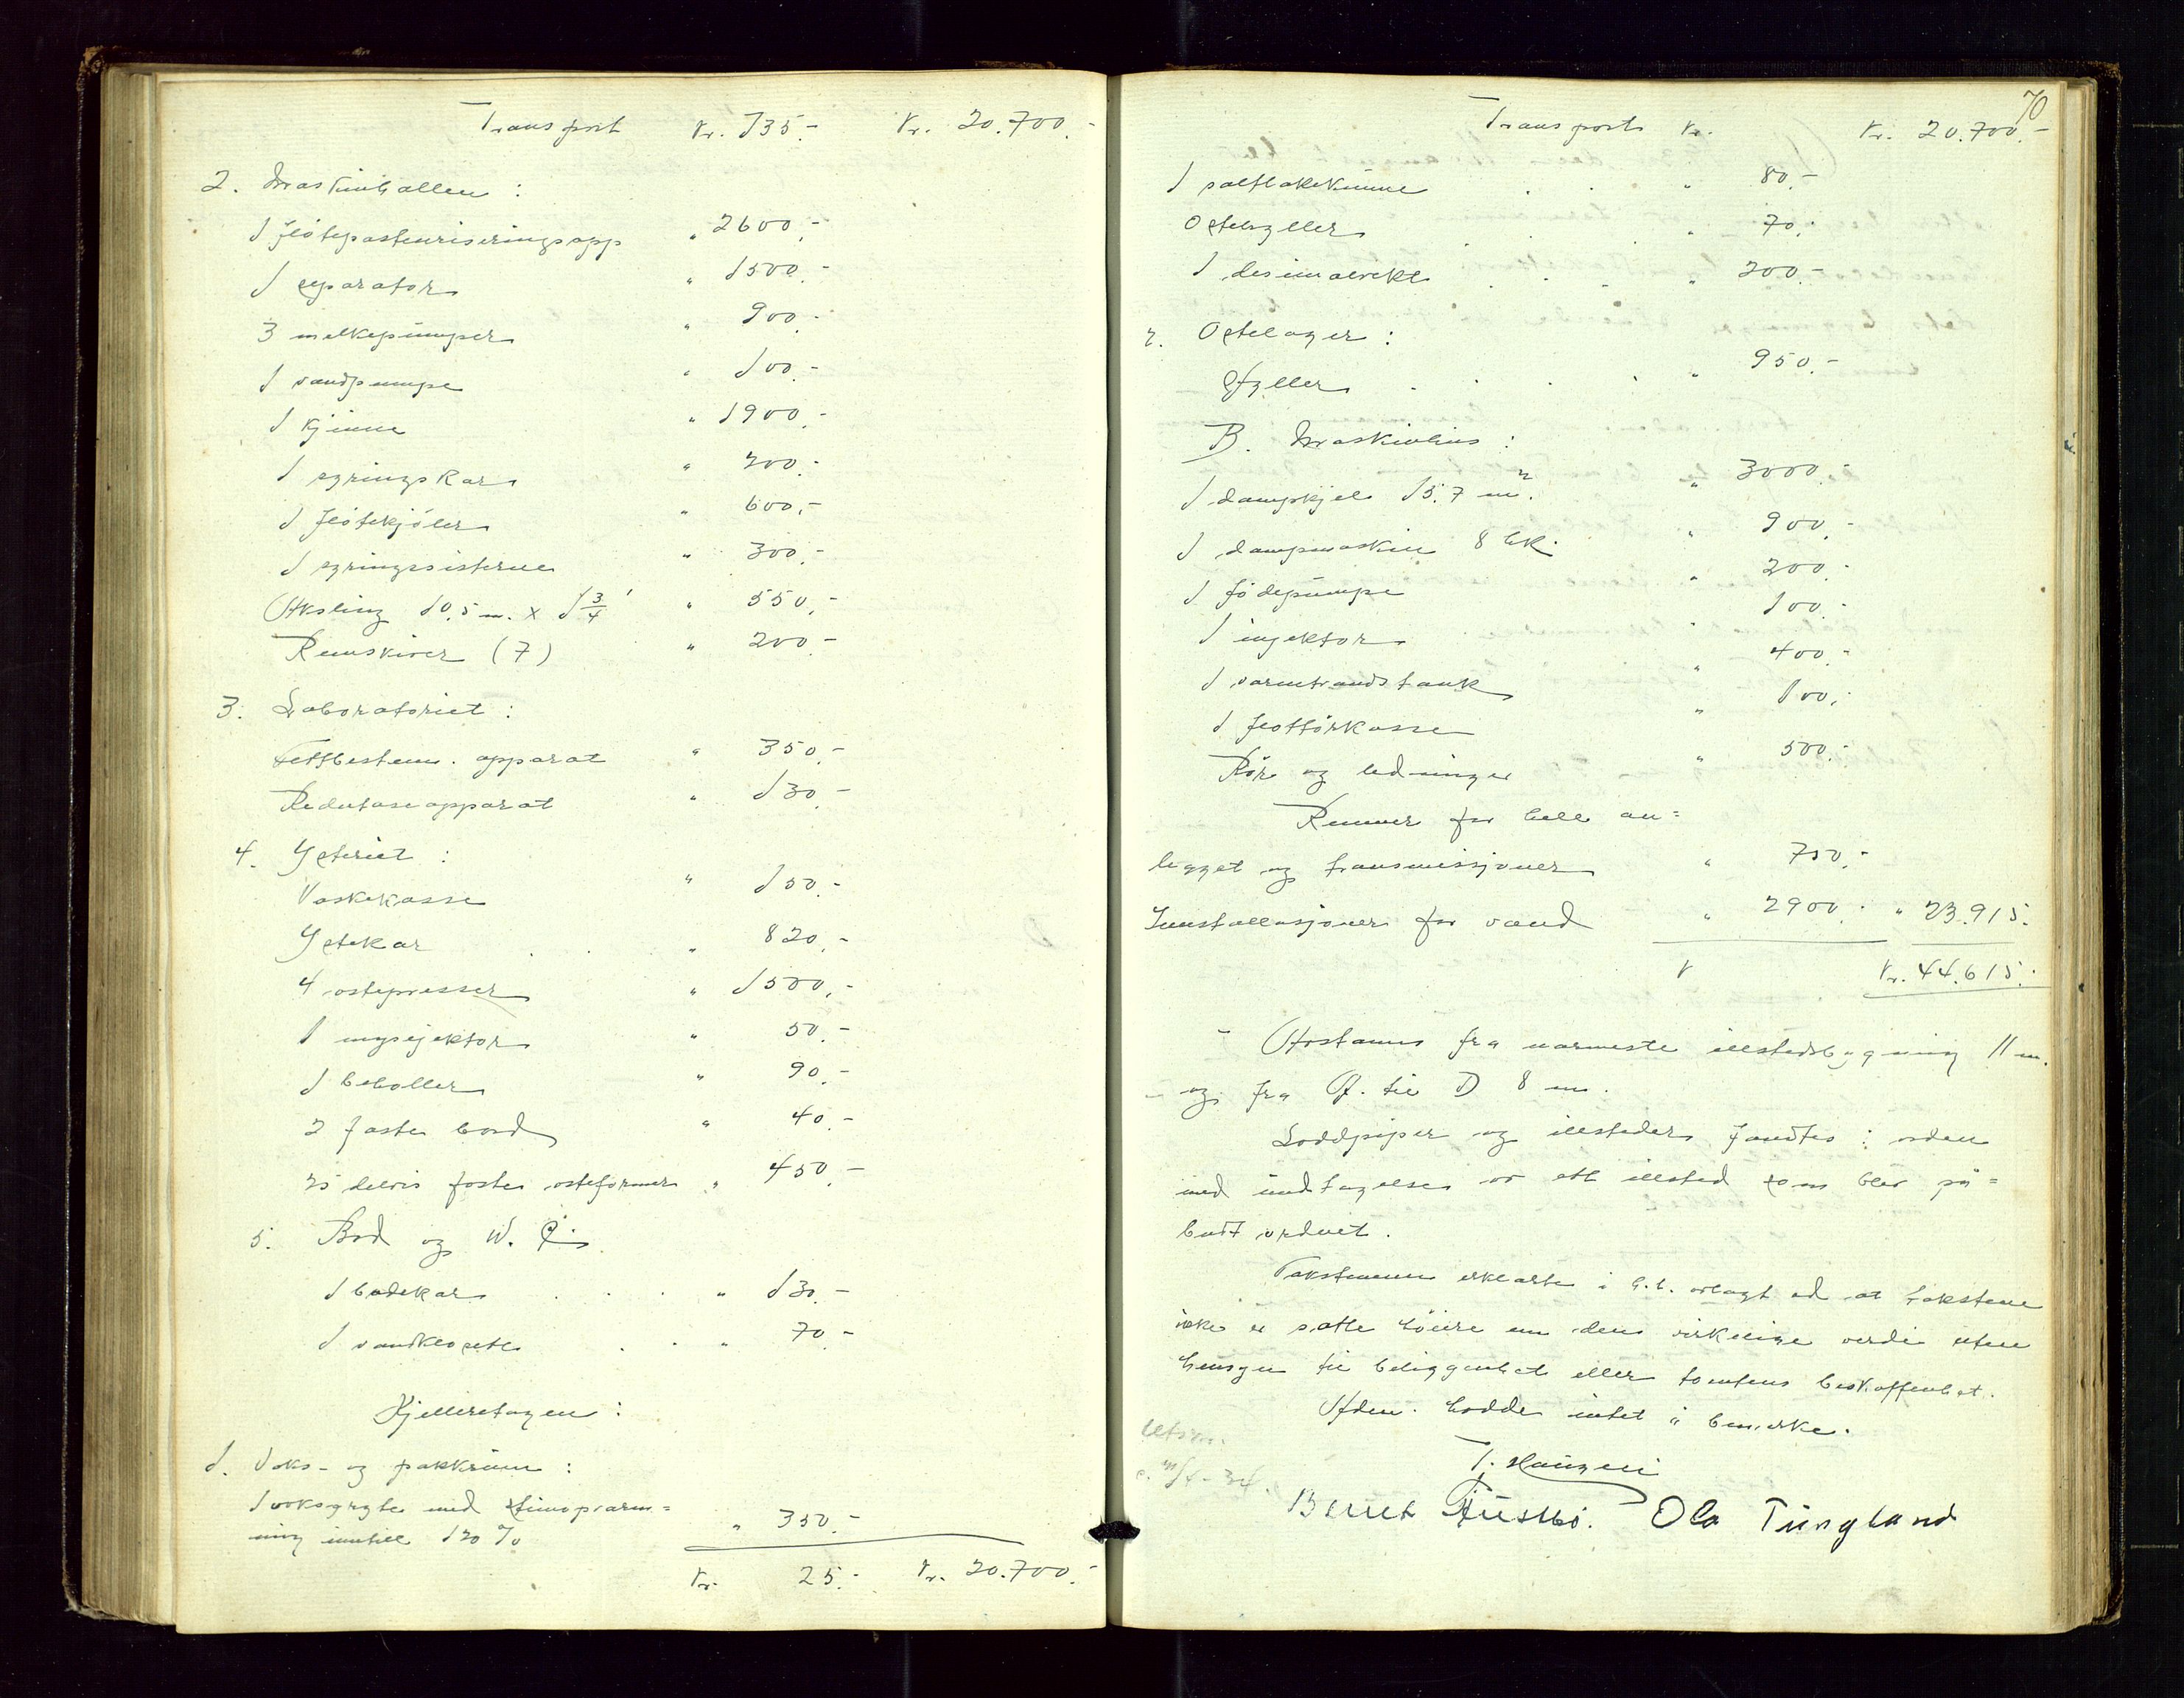 Transport Kr. 735.- Kr. 20.700.-
2. Maskinhallen :
1 fløtepasteuriseringsapp " 2600.-
1 separator " 1500.-
3 melkepumper " 900.-
1 vandpumpe " 100.-
1 kjinne " 1900.-
1 syringskar " 200.-
1 fløtekjøler " 600.-
1 syringssisterne " 300.-
Aksling 10,5 m. x 1 3/4' " 550.-
Remskiver (7) " 200.-
3. Laboratoriet :
Fettbestem. apparat " 350.-
Redutaseapparat " 130.-
4. Ysteriet :
Vaskekasse " 150.-
Ystekar . . " 820.-
4 ostepresser " 1500.-
1 mysejektor " 50.-
1 beholler " 90.-
2 faste bord " 40.-
25 delvis faste osteformer " 450.-
5. Bad og W. C.
1 badekar . . . " 130.-
1 vandklosett . . " 70.-
Kjelleretagen :
1. Voks- og pakkrum :
1 voksgryte med stimopvarm=
ning inntill 120 % " 350.-
Kr. 25.- Kr. 20.700.-
70
Transport Kr. Kr. 20.700.-
1 saltlakekumme . . " 80.-
Ostehyller . . " 70.-
1 desimalvekt . . . " 200.-
2. Ostelager :
Hyller . . . " 950.-
B. Maskinhus :
1 dampkjel 15.7 m². " 3000.-
1 dampmaskin 8 hk. " 900.-
1 fødepumpe " 200.-
1 injektor " 100.-
1 varmtvandstank " 400.-
1 flottørkasse " 100.-
Rør og ledninger " 500.-
Remmer for hele an=
legget og transmissjoner " 750.-
Innstallasjoner for vand " 2900.- " 23.915.-
Kr. 44.615.-
Avstanns fra nærmeste illstedsbygning 11 m.
og fra A. til D 8 m.
Loddpiper og illsteder fandtes i orden
med undtagelse av ett illsted som blev på=
budt ordnet.
Takstmenn erklærte i h.t. avlagt ed at takstene
ikke er satte høiere enn den virkelige verdi uten
hensyn til beliggenhet eller tomtens beskaffenhet.
Adm. hadde intet å bemerke.
Utsn.
T. Haugen
Bernt Ausbø. Ola Tungland